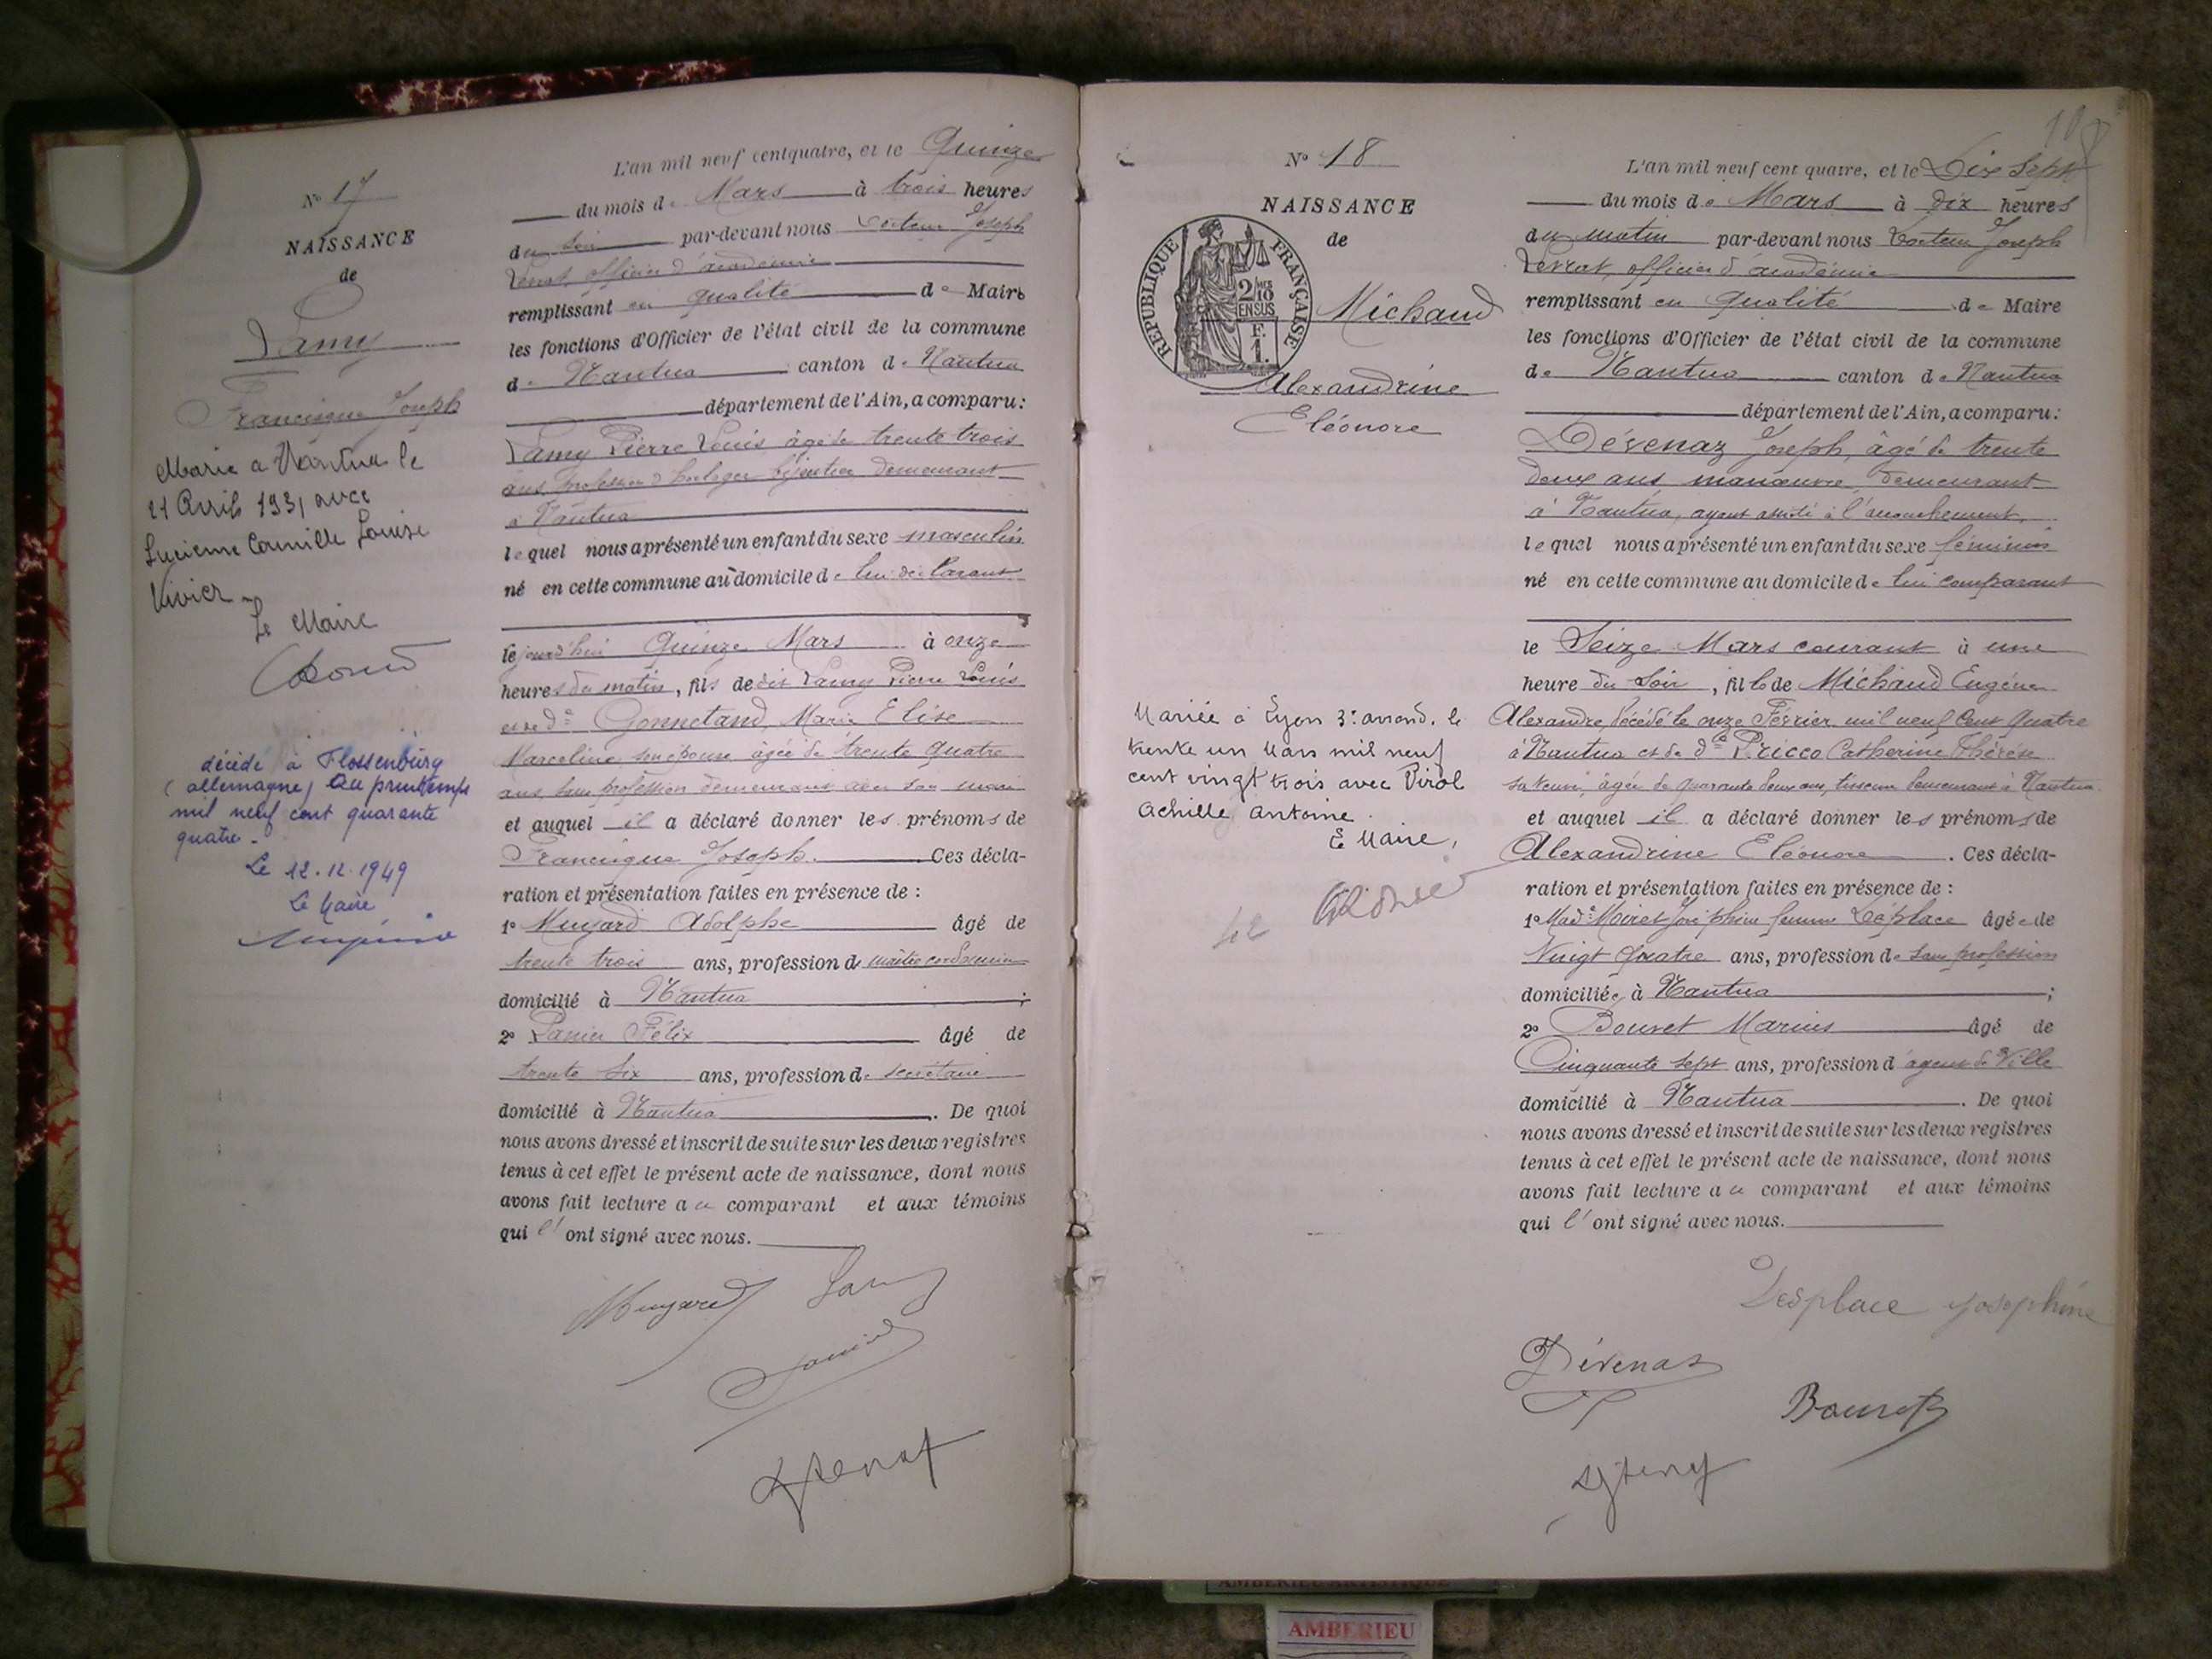 N° 17
NAISSANCE
de
Lamy
Francisque Joseph
Marié à Nantua le
21 Avril 1931 avec
Lucienne Camille Louise
Vivier
Le Maire
décédé à Flossenbürg
(allemagne) au printemps
mil neuf cent quarante
quatre.
Le 12.12.1949
Le Maire
L'an mil neuf cent quatre, et le Quinze
du mois de Mars à trois heures
du soir par-devant nous Docteur Joseph
officier d'académie
remplissant en qualité de Maire
les fonctions d'Officier de l'état civil de la commune
de Nantua canton de Nantua
département de l'Ain, a comparu:
Lamy Pierre Louis âgé de trente trois
ans profession d'horloger bijoutier demeurant
à Nantua
lequel nous a présenté un enfant du sexe masculin
né en cette commune au domicile de lui déclarant
le jourd'hui Quinze Mars à onze
heures du matin, fils de dit Lamy Pierre Louis
et de de Gonnetand Marie Elise
Marceline son épouse âgée de trente quatre
ans sans profession demeurant avec son mari
et auquel il a déclaré donner les prénoms de
Francisque Joseph. Ces décla-
ration et présentation faites en présence de :
1° Muyard Adolphe âgé de
trente trois ans, profession de maître cordonnier
domicilié à Nantua ;
2° Panier Félix âgé de
trente six ans, profession de secrétaire
domicilié à Nantua. De quoi
nous avons dressé et inscrit de suite sur les deux registres
tenus à cet effet le présent acte de naissance, dont nous
avons fait lecture au comparant et aux témoins
qui l'ont signé avec nous.
Muyard Lamy
Panier
N° 18
NAISSANCE
de
RÉPUBLIQUE FRANÇAISE
2/10 EN SUS
F.
1.
Michaud
Alexandrine
Eléonore
Mariée à Lyon 3e arrond. le
trente un Mars mil neuf
cent vingt trois avec Pirol
Achille Antoine
Le Maire,
L'an mil neuf cent quatre, et le Dix Sept
du mois de Mars à dix heures
du matin par-devant nous Docteur Joseph
officier d'académie
remplissant en qualité de Maire
les fonctions d'Officier de l'état civil de la commune
de Nantua canton de Nantua
département de l'Ain, a comparu:
Dévenaz Joseph, âgé de trente
deux ans manœuvre, demeurant
à Nantua, ayant assisté à l'accouchement,
lequel nous a présenté un enfant du sexe féminin
né en cette commune au domicile de lui comparant
le Seize Mars courant à une
heure du soir, fille de Michaud Eugène
Alexandre, décédé le onze Février mil neuf Cent quatre
à Nantua et de de Pricco Catherine Thérèse
sa veuve, âgée de quarante deux ans, tisseuse demeurant à Nantua
et auquel il a déclaré donner les prénoms de
Alexandrine Eléonore. Ces décla-
ration et présentation faites en présence de :
1° Made Moiret Joséphine femme Déplace âgée de
Vingt Quatre ans, profession de sans profession
domiciliée à Nantua ;
2° Bouvet Marius âgé de
Cinquante Sept ans, profession d'agent de Ville
domicilié à Nantua. De quoi
nous avons dressé et inscrit de suite sur les deux registres
tenus à cet effet le présent acte de naissance, dont nous
avons fait lecture au comparant et aux témoins
qui l'ont signé avec nous.
Desplace Joséphine
Dévenas
Bouvet
AMBERIEU ARTISTIQUE
AMBERIEU